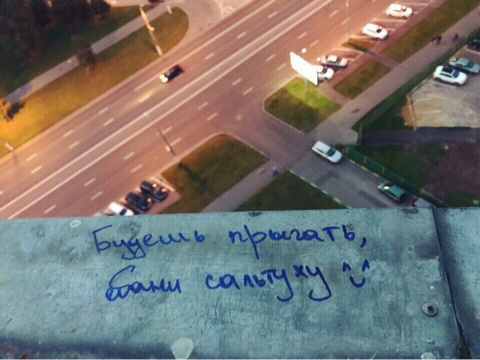 Будешь прыгать,
ебани сальтуху ツ